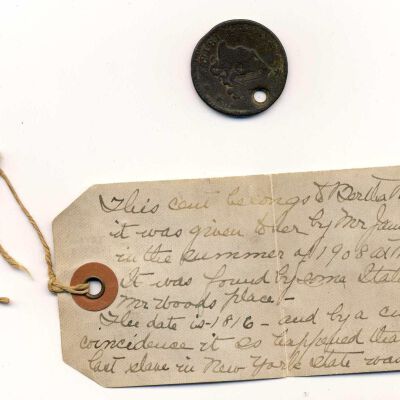 This cent belongs to Bertha
it was given to her by Mr
in the summer of 1908 at
It was found by some
Mr Woods place! -
The date is - 1816 - and by a
coincidence it so happened
last slave in New York State was